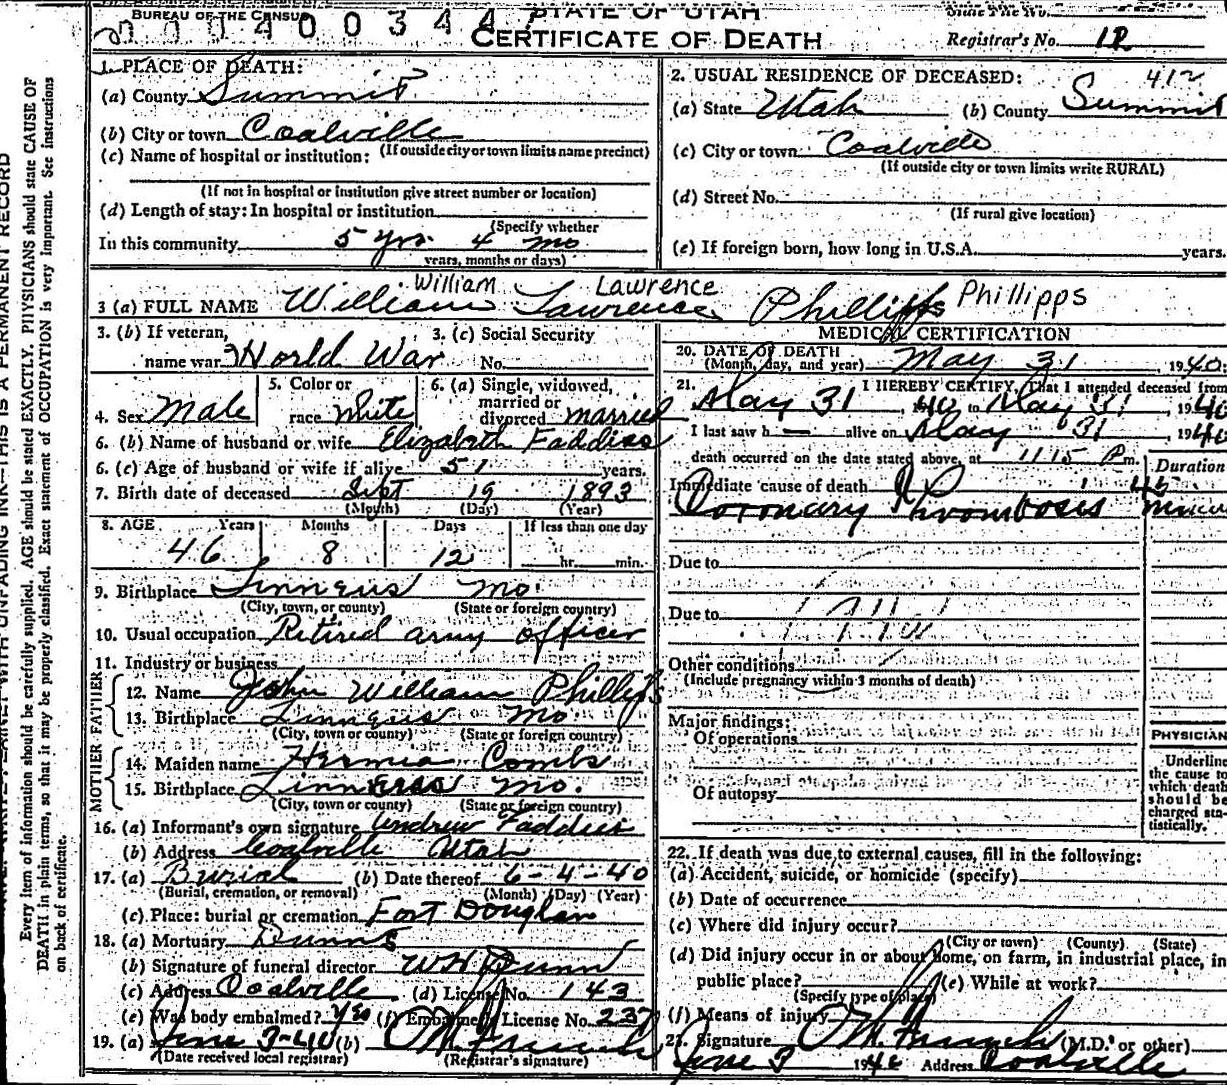 BUREAU OF THE CENSUS
STATE OF UTAH
CERTIFICATE OF DEATH
State File No.
Registrar's No. 12
THIS IS A PERMANENT RECORD
Every item of information should be carefully supplied. AGE should be stated EXACTLY. PHYSICIANS should state CAUSE OF
DEATH in plain terms, so that it may be properly classified. Exact statement of OCCUPATION is very important. See instructions
on back of certificate.
1. PLACE OF DEATH:
(a) County Summit
(b) City or town Coalville
(If outside city or town limits name precinct)
(c) Name of hospital or institution:
(If not in hospital or institution give street number or location)
(d) Length of stay: In hospital or institution
(Specify whether
In this community 5 yrs. 4 mo
years, months or days)
2. USUAL RESIDENCE OF DECEASED:
(a) State Utah (b) County Summit
(c) City or town Coalville
(If outside city or town limits write RURAL)
(d) Street No.
(If rural give location)
(e) If foreign born, how long in U.S.A. years.
William Lawrence
3 (a) FULL NAME William Lawrence Phillipps Phillipps
3. (b) If veteran, name war World War
3. (c) Social Security No.
4. Sex Male
5. Color or race White
6. (a) Single, widowed, married or divorced married
6. (b) Name of husband or wife Elizabeth Faddiss
6. (c) Age of husband or wife if alive 51 years.
7. Birth date of deceased Sept 19 1893
(Month) (Day) (Year)
8. AGE Years Months Days If less than one day
46 8 12 hr. min.
9. Birthplace Linneus Mo.
(City, town, or county) (State or foreign country)
10. Usual occupation Retired army officer
11. Industry or business
FATHER
12. Name John William Phillipps
13. Birthplace Linneus Mo
(City, town or county) (State or foreign country)
MOTHER
14. Maiden name Combs
15. Birthplace Linneus Mo.
(City, town or county) (State or foreign country)
16. (a) Informant's own signature Andrew Faddies
(b) Address Coalville Utah
17. (a) Burial (b) Date thereof 6-4-40
(Burial, cremation, or removal) (Month) (Day) (Year)
(c) Place: burial or cremation Fort Douglas
18. (a) Mortuary Dunns
(b) Signature of funeral director W H Dunn
(c) Address Coalville (d) License No. 143
(e) Was body embalmed? Yes (f) Embalmer's License No. 237
19. (a) June 3-40 (b)
(Date received local registrar) (Registrar's signature)
MEDICAL CERTIFICATION
20. DATE OF DEATH
(Month, day, and year) May 31, 1940.
21. I HEREBY CERTIFY, That I attended deceased from
May 31, 1940 to May 31, 1940
I last saw h — alive on May 31, 1940
death occurred on the date stated above, at 1115 P m.
Duration
Immediate cause of death
Coronary Thrombosis 45
Due to
Due to
Other conditions
(Include pregnancy within 3 months of death)
Major findings:
Of operations
Of autopsy
PHYSICIAN
Underline
the cause to
which death
should be
charged sta-
tistically.
22. If death was due to external causes, fill in the following:
(a) Accident, suicide, or homicide (specify)
(b) Date of occurrence
(c) Where did injury occur?
(City or town) (County) (State)
(d) Did injury occur in or about home, on farm, in industrial place, in
public place? (e) While at work?
(Specify type of place)
(f) Means of injury
23. Signature (M.D. or other)
June 3 1940 Address Coalville